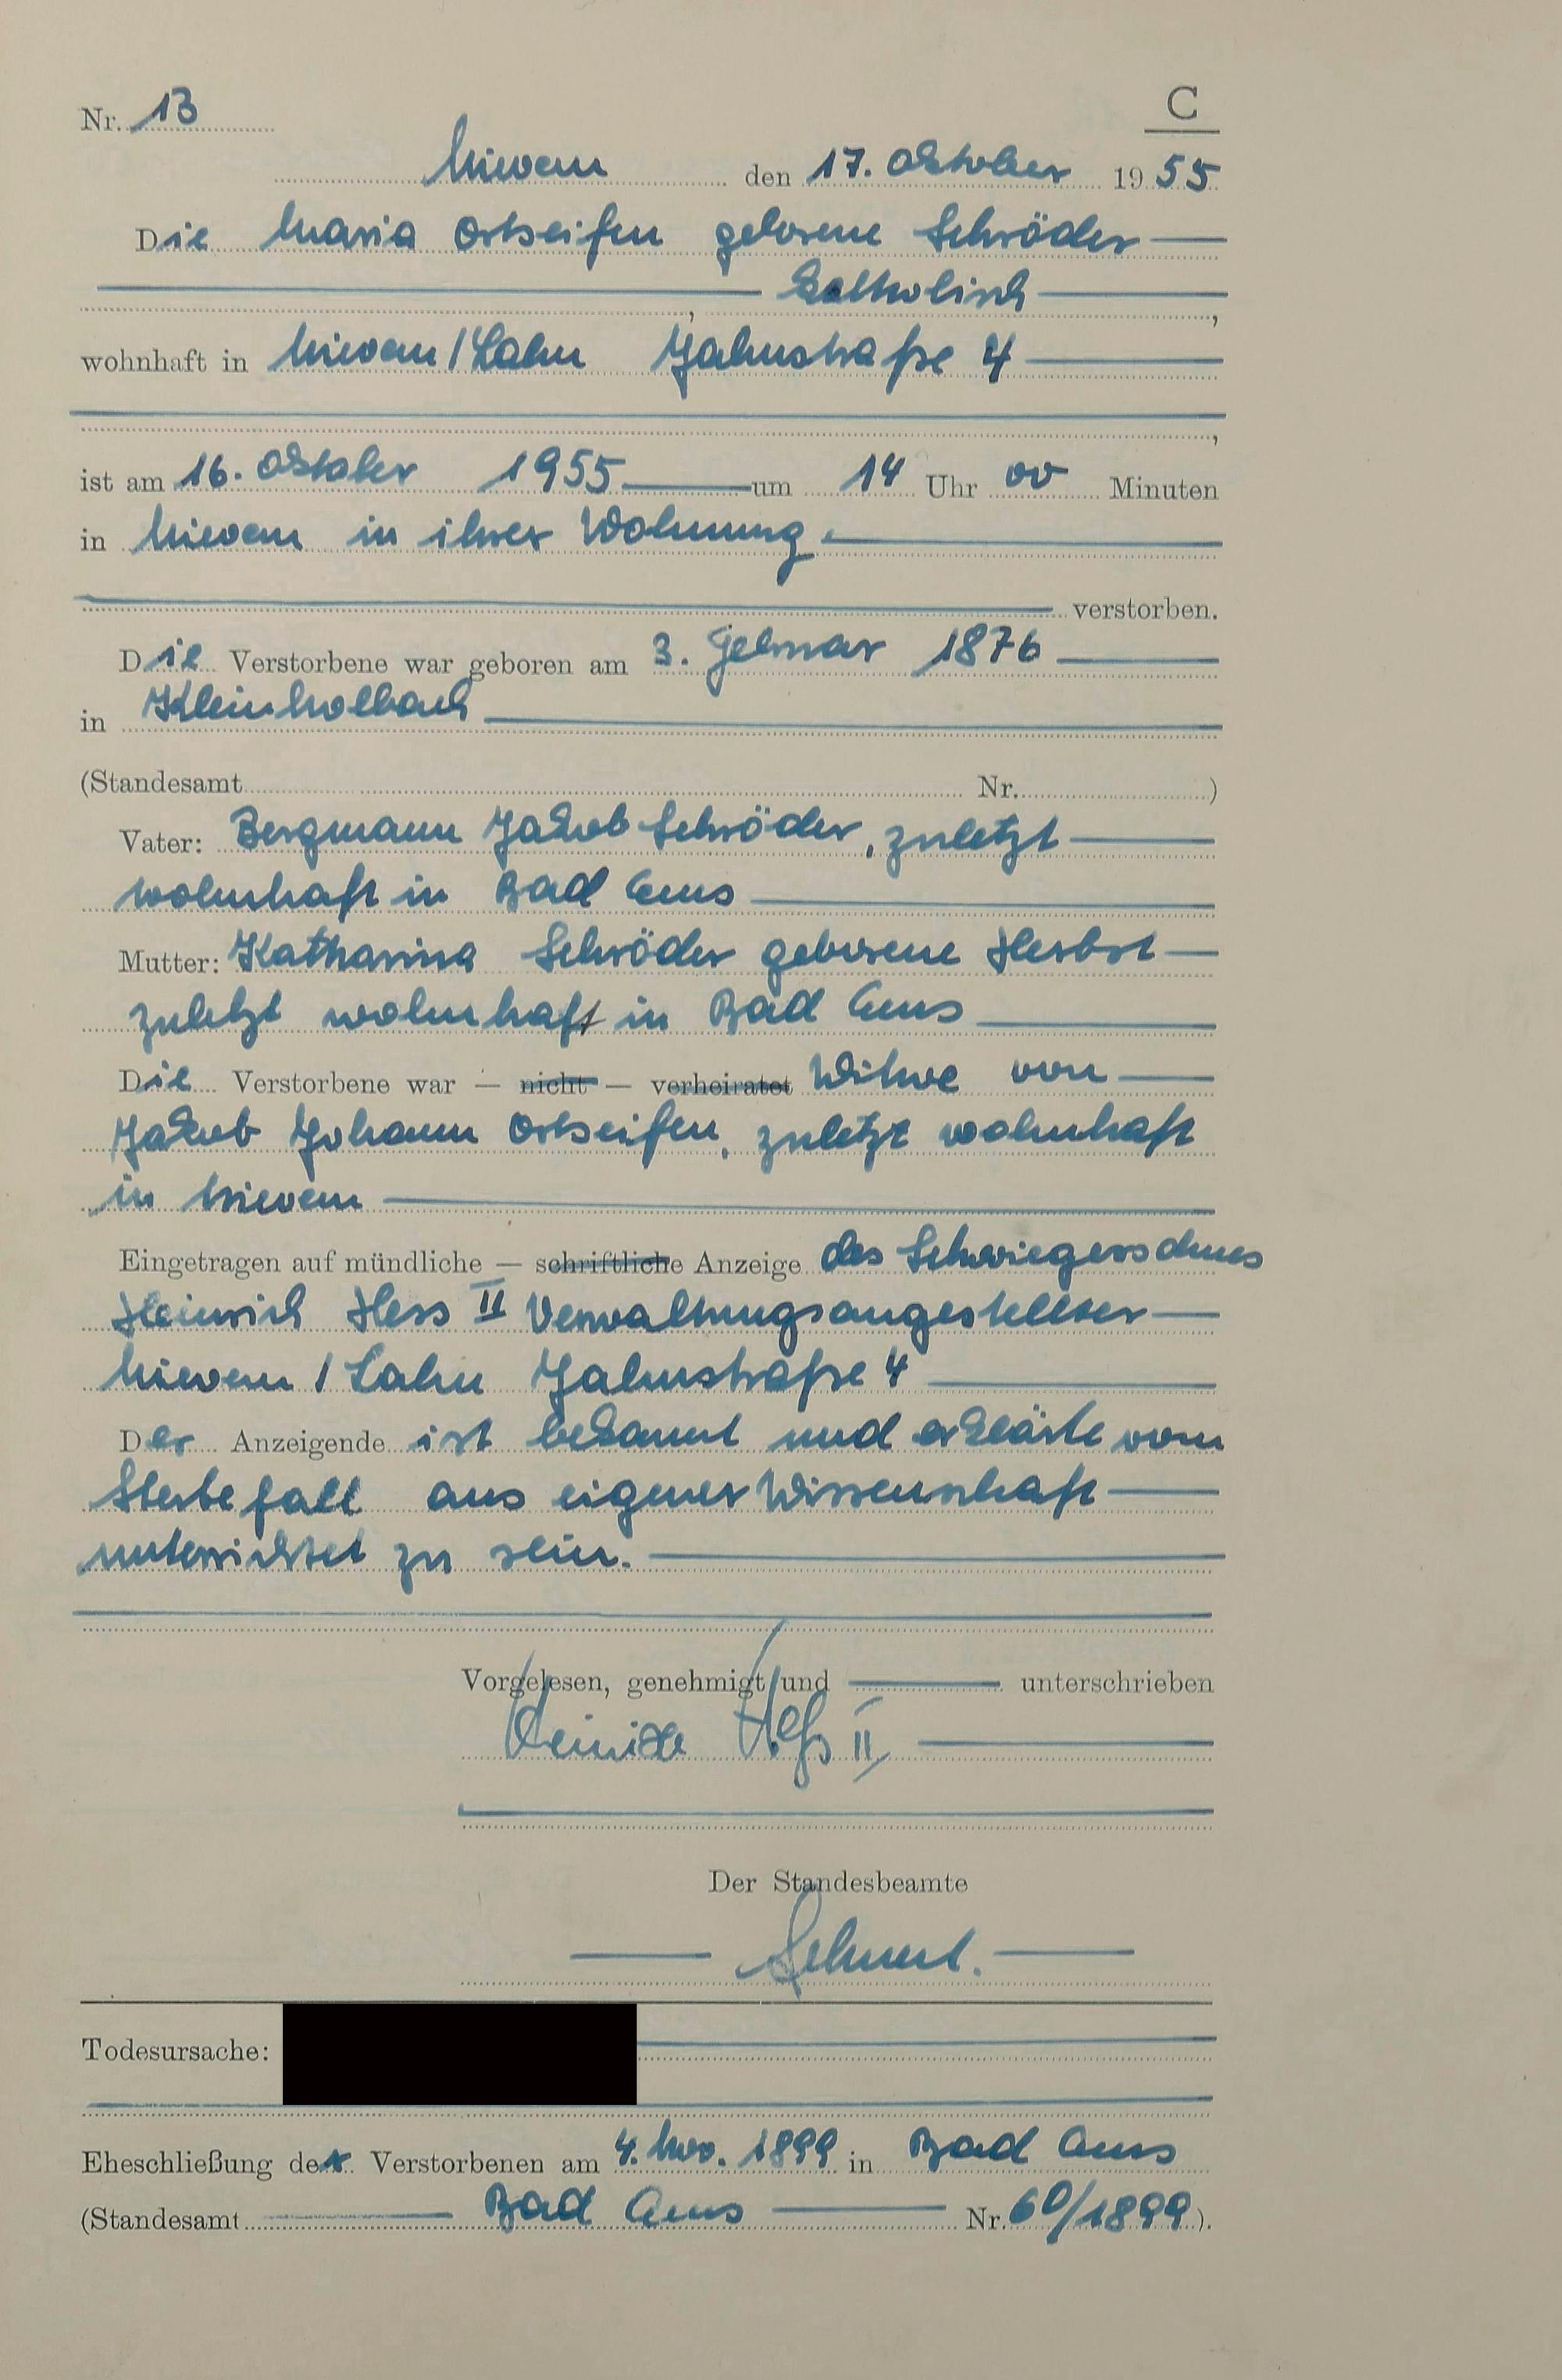 Nr. 13
C
Mievern den 17. Oktober 1955
Die Maria Ortseifen geborene Schröder
katholisch,
wohnhaft in Mievern / Lahn Jahnstraße 4
,
ist am 16. Oktober 1955 um 14 Uhr 00 Minuten
in Mievern in ihrer Wohnung.
verstorben.
Die Verstorbene war geboren am 3. Februar 1876
in Kleinholbach
(Standesamt Nr. )
Vater: Bergmann Jakob Schröder, zuletzt
wohnhaft in Bad Ems
Mutter: Katharina Schröder geborene Herbst
zuletzt wohnhaft in Bad Ems
Die Verstorbene war – nicht – verheiratet Witwe von
Jakob Johann Ortseifen, zuletzt wohnhaft
in Mievern
Eingetragen auf mündliche – schriftliche Anzeige des Schwiegersohnes
Heinrich Hess II Verwaltungsangestellter
Mievern / Lahn Jahnstraße 4
Der Anzeigende ist bekannt und erklärte vom
Sterbefall aus eigener Wissenschaft
unterrichtet zu sein.
Vorgelesen, genehmigt und unterschrieben
Heinrich Heß II
Der Standesbeamte
Todesursache:
Eheschließung der Verstorbenen am 4. Nov. 1899 in Bad Ems
(Standesamt Bad Ems Nr. 60/1899).